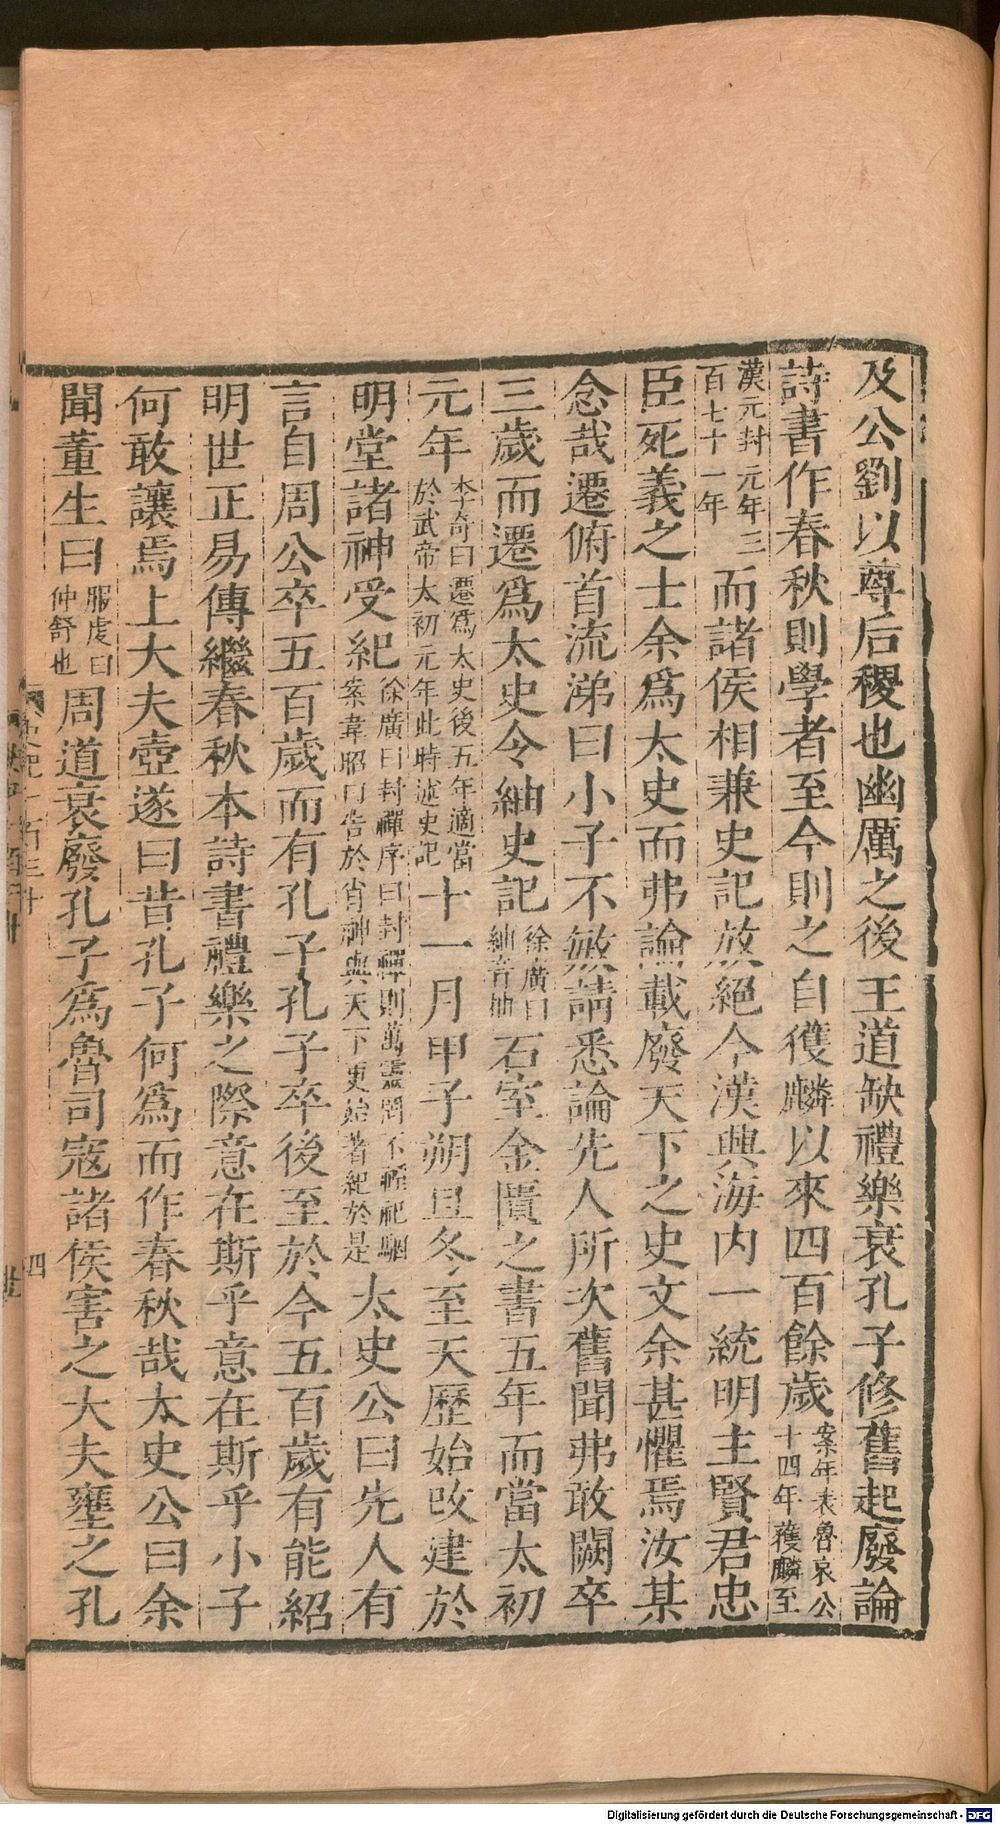 及公劉以尊后稷也幽厲之後王道缺禮樂衰孔子修舊起廢論
詩書作春秋則學者至今則之自獲麟以來四百餘歲案年表魯哀公十四年獲麟至
漢元封元年三百七十一年而諸侯相兼史記放絕今漢興海內一統明主賢君忠
臣死義之士余爲太史而弗論載廢天下之史文余甚懼焉汝其
念哉遷俯首流涕曰小子不敏請悉論先人所次舊聞弗敢闕卒
三歲而遷爲太史令紬史記徐廣曰紬音抽石室金匱之書五年而當太初
元年李奇曰遷爲太史後五年適當於武帝太初元年此時述史記十一月甲子朔旦冬至天歷始改建於
明堂諸神受紀徐廣曰封禪序曰封禪則萬靈罔不禋祀駰案韋昭曰告於百神與天下更始著紀於是太史公曰先人有
言自周公卒五百歲而有孔子孔子卒後至於今五百歲有能紹
明世正易傳繼春秋本詩書禮樂之際意在斯乎意在斯乎小子
何敢讓焉上大夫壺遂曰昔孔子何爲而作春秋哉太史公曰余
聞董生曰服虔曰仲舒也周道衰廢孔子爲魯司寇諸侯害之大夫壅之孔
四
Digitalisierung gefördert durch die Deutsche Forschungsgemeinschaft - DFG